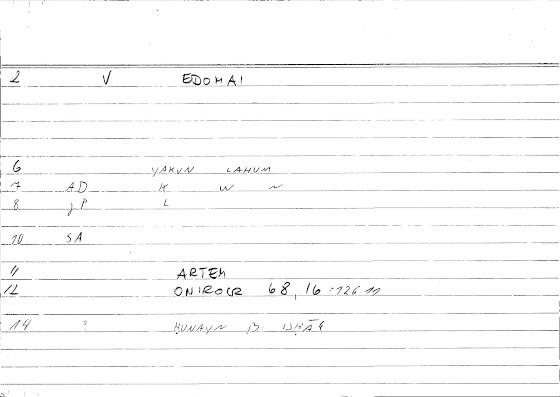 2 V EDOMAI
6 YAKVN LAHUM
7 AD K W N
8 JP L
10 SA
11 ARTEM
12 ONIROCR 68, 16 : 126.11
14 ? ḤUNAYN B. ISḤĀQ